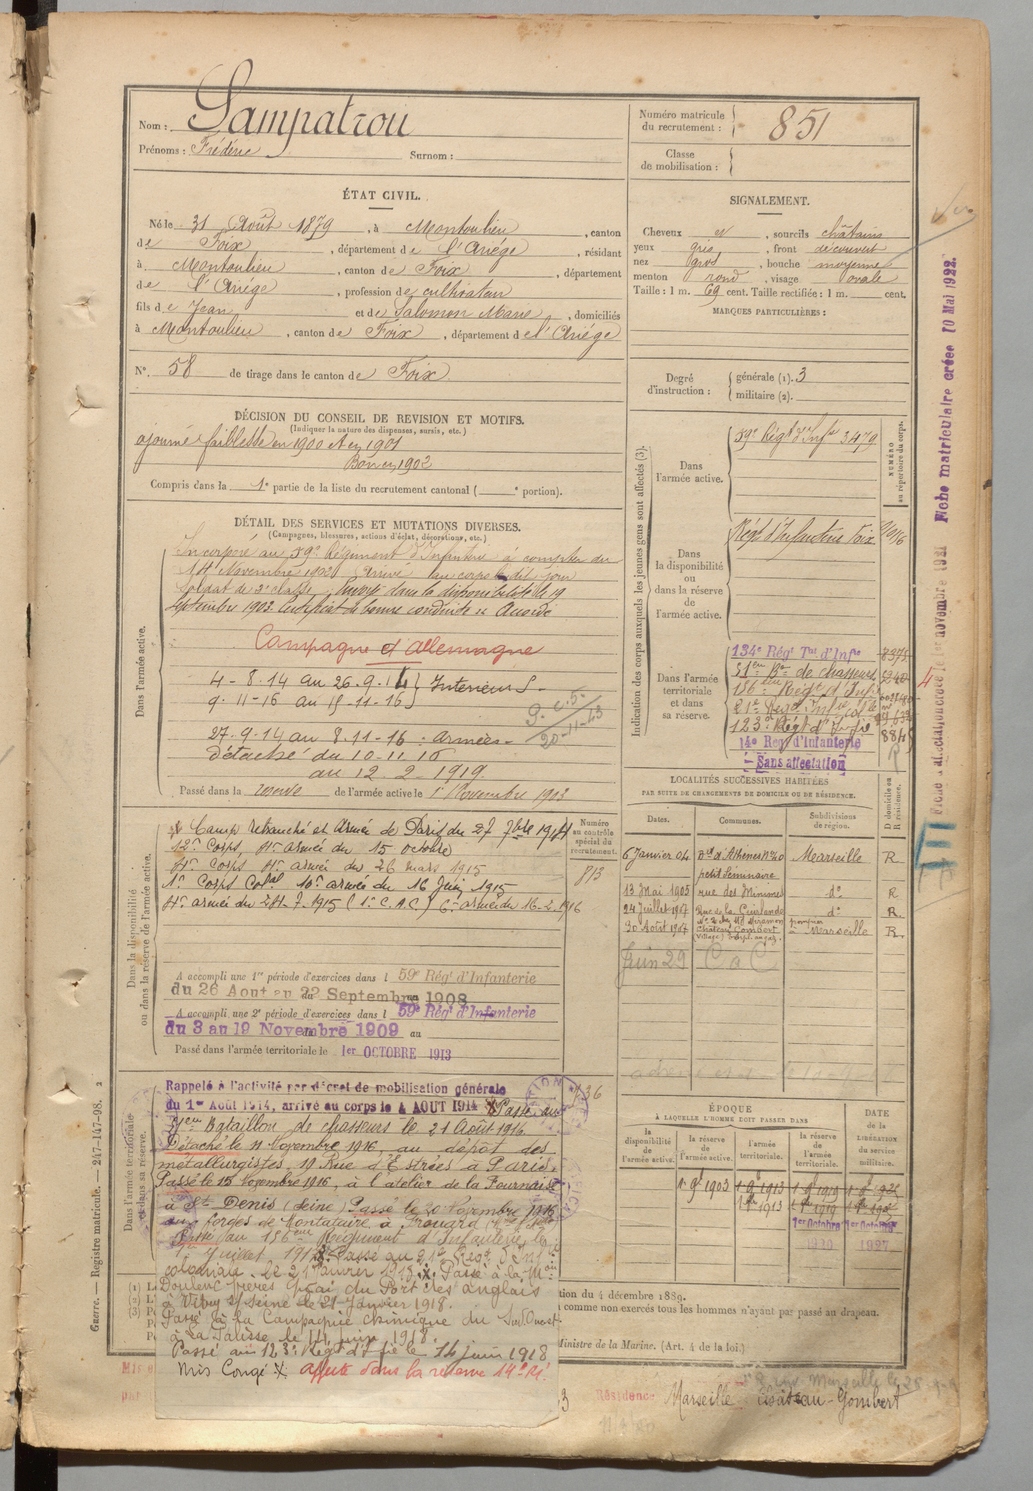 Nom : Lampatrou
Prénoms : Frédéric Surnom :
Numéro matricule du recrutement : 851
Classe de mobilisation :
ÉTAT CIVIL.
Né le 31 Août 1879, à Montoulieu, canton
de Foix, département de l'Ariège, résidant
à Montoulieu, canton de Foix, département
de l'Ariège, profession de cultivateur
fils de Jean et de Salomon Marie, domiciliés
à Montoulieu, canton de Foix, département de l'Ariége
N° 58 de tirage dans le canton de Foix
SIGNALEMENT.
Cheveux et, sourcils châtains
yeux gris, front découvert
nez gros, bouche moyenne
menton rond, visage ovale
Taille : 1 m. 69 cent. Taille rectifiée : 1 m. cent.
MARQUES PARTICULIÈRES :
Degré d'instruction : générale (1). 3
militaire (2).
DÉCISION DU CONSEIL DE REVISION ET MOTIFS.
(Indiquer la nature des dispenses, sursis, etc.)
ajourné faiblesse en 1900 et en 1901
Bon en 1902
Compris dans la 1e partie de la liste du recrutement cantonal ( e portion).
DÉTAIL DES SERVICES ET MUTATIONS DIVERSES.
(Campagnes, blessures, actions d'éclat, décorations, etc.)
Dans l'armée active.
Incorporé au 59e Régiment d'Infanterie à compter du
14 Novembre 1902 Arrivé au corps le dit jour
soldat de 2e classe. Envoyé dans la disponibilité le 19
septembre 1903. Certificat de bonne conduite "Accordé"
Campagne ct Allemagne
4-8.14 au 26.9.14 } Interieur S-
9.11-16 au 15-11-16 }
27.9.14 au 8.11-16 : Armées-
Détaché du 10.11.16
au 12.2-1919.
Passé dans la réserve de l'armée active le 1er Novembre 1903
Dans la disponibilité ou dans la réserve de l'armée active.
Camp retranché et Armée de Paris du 27 7bre 1914
12e Corps, 4e armée du 15 octobre
4e Corps 4e armée du 26 mars 1915
1er Corps Colal 10e armée du 16 Juin 1915
4e armée du 24.7.1915 (1er C.A.C) 6e armée du 16-2.1916
Numéro au contrôle spécial du recrutement.
813
A accompli une 1re période d'exercices dans l 59e Régt d'Infanterie
du 26 Aout au 22 Septembre 1908
A accompli une 2e période d'exercices dans l 59e Régt d'Infanterie
du 3 au 19 Novembre 1909 au
Passé dans l'armée territoriale le 1er OCTOBRE 1913
Dans l'armée territoriale et dans sa réserve.
Rappelé à l'activité par décret de mobilisation générale
du 1er Août 1914, arrivé au corps le 4 AOUT 1914 Passé au
51eme Bataillon de chasseurs le 21 Août 1916
Détaché le 11 Novembre 1916, au dépôt des
métallurgistes, 19 Rue d'Estrées à Paris.
Passé le 15 Novembre 1916, à l'atelier de la Fournaise
à St Denis (Seine) Passé le 20 Novembre 1916
aux forges de Montataire, à Frouard
Passé au 156eme Régiment d'Infanterie le
1er Juillet 1917. Passé au 21e Régt d'Inf
coloniale. le 21 Janvier 1918. Passé à la Mon
Poulenc frères Quai du Port des anglais
à Vitry s/ Seine le 21 Janvier 1918.
Passé à la Compagnie chimique du Sud Ouest
à La Palisse le 14 juin 1918.
Passé au 123e Régt d'Infie le 14 juin 1918
Mis Congé affecté dans la réserve 14e RI
Indication des corps auxquels les jeunes gens sont affectés (3).
NUMÉRO au répertoire du corps.
Dans l'armée active.
59e Régt d'Infie 3479
Dans la disponibilité ou dans la réserve de l'armée active.
Régt d'Infanterie Foix
Dans l'armée territoriale et dans sa réserve.
134e Régt Tal d'Infie 8375
51eme Bon de chasseurs
156eme Régt d'Infie
21e Régt Infie Cole
123e Régt d'Infie
14e Regt d'Infanterie
Sans affectation
LOCALITÉS SUCCESSIVES HABITÉES
PAR SUITE DE CHANGEMENTS DE DOMICILE OU DE RÉSIDENCE.
Dates. Communes. Subdivisions de région. D domicile ou R résidence.
6 Janvier 04 Bd d'Athènes No 40 Marseille R
petit Seminaire
13 Mai 1905 rue des Minimes do R
24 Juillet 1907 Rue de la Guirlande do R
30 Août 1907 Château Gombert Marseille R.
Juin 29 C à C
ÉPOQUE
À LAQUELLE L'HOMME DOIT PASSER DANS
DATE DE LA LIBÉRATION DU SERVICE MILITAIRE.
la disponibilité de l'armée active. la réserve de l'armée active. l'armée territoriale. la réserve de l'armée territoriale.
1 9 1903 1 9 1913 1 9 1919 1 9 1925
1er Octobre 1er Octobre
1920 1927
tion du 4 décembre 1889.
comme non exercés tous les hommes n'ayant pas passé au drapeau.
Ministre de la Marine. (Art. 4 de la loi.)
Résidence Marseille Château-Gombert
Guerre. — Registre matricule. — 247-147-98. 2
Fiche matriculaire créée 10 Mai 1922.